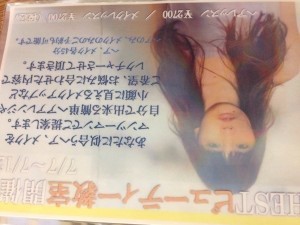 HESTビューティー教室
7/7〜7/1 開催
あなたに似合うヘア、メイクを
マンツーマンでご提案します。
自分で出来る簡単ヘアアレンジや
小顔に見えるメイクアップなど
ご希望、お悩みに合わせた内容で
レクチャーさせて頂きます。
ヘア、メイク各45分
のみ、メイクのみのご予約も可能です。
ヘアレッスン / ¥2700
メイクレッスン / ¥2700